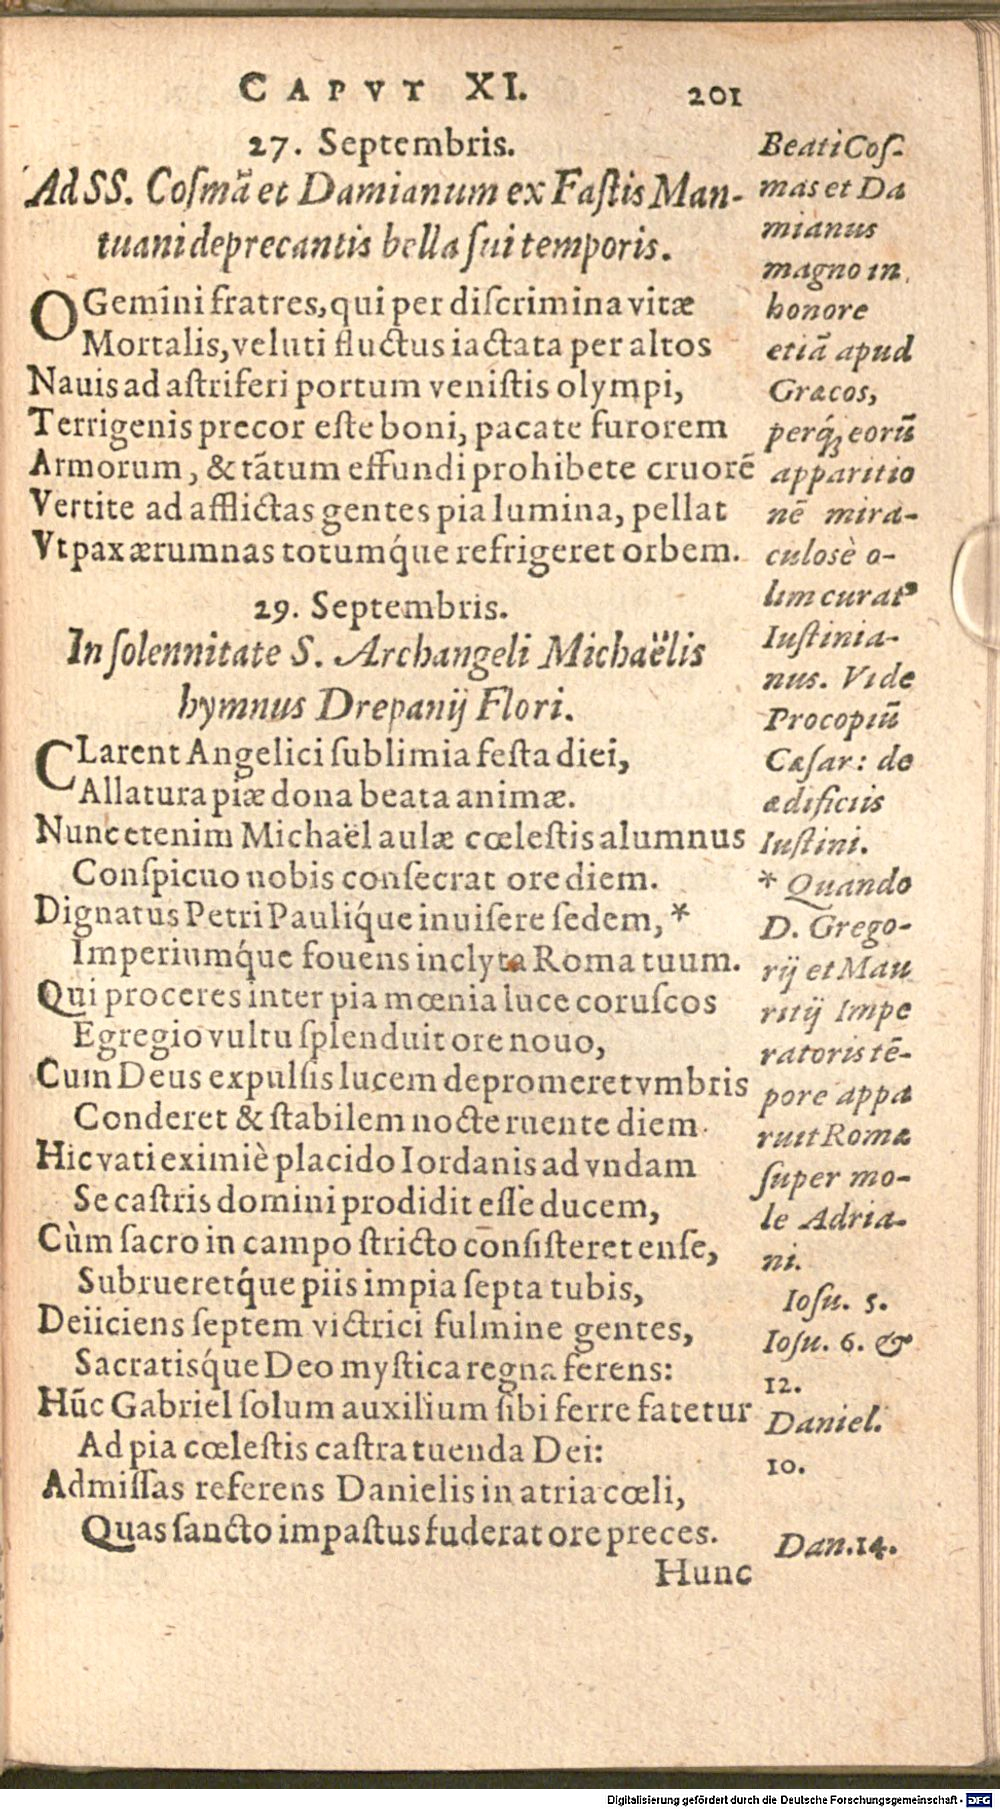 CAPVT XI. 201
27. Septembris.
Ad SS. Coſmā et Damianum ex Faſtis Man-
tuani deprecantis bella ſui temporis.
O Gemini fratres, qui per diſcrimina vitæ
Mortalis, veluti fluctus iactata per altos
Nauis ad aſtriferi portum veniſtis olympi,
Terrigenis precor eſte boni, pacate furorem
Armorum, & tātum effundi prohibete cruorē
Vertite ad afflictas gentes pia lumina, pellat
Vt pax ærumnas totumq́ue refrigeret orbem.
29. Septembris.
In ſolennitate S. Archangeli Michaëlis
hymnus Drepanij Flori.
CLarent Angelici ſublimia feſta diei,
Allatura piæ dona beata animæ.
Nunc etenim Michaël aulæ cœleſtis alumnus
Conſpicuo nobis conſecrat ore diem.
Dignatus Petri Pauliq́ue inuiſere ſedem, *
Imperiumq́ue fouens inclyta Roma tuum.
Qui proceres inter pia mœnia luce coruſcos
Egregio vultu ſplenduit ore nouo,
Cum Deus expulſis lucem depromeret vmbris
Conderet & ſtabilem nocte ruente diem.
Hic vati eximiè placido Iordanis ad vndam
Se caſtris domini prodidit eſſe ducem,
Cùm ſacro in campo ſtricto conſiſteret enſe,
Subrueretq́ue piis impia ſepta tubis,
Deiiciens ſeptem victrici fulmine gentes,
Sacratisq́ue Deo myſtica regna ferens:
Hūc Gabriel ſolum auxilium ſibi ferre fatetur
Ad pia cœleſtis caſtra tuenda Dei:
Admiſſas referens Danielis in atria cœli,
Quas ſancto impaſtus fuderat ore preces.
Hunc
Beati Coſ-
mas et Da
mianus
magno in
honore
etiā apud
Græcos,
perq́ꝫ eorū
apparitio
nē mira-
culosè o-
lim curatꝰ
Iuſtinia-
nus. Vide
Procopiū
Cæſar: de
ædificiis
Iuſtini.
* Quando
D. Grego-
rij et Mau
ritij Impe
ratoris tē-
pore appa
ruit Romæ
ſuper mo-
le Adria-
ni.
Ioſu. 5.
Ioſu. 6. &
12.
Daniel.
10.
Dan. 14.
Digitalisierung gefördert durch die Deutsche Forschungsgemeinschaft - DFG